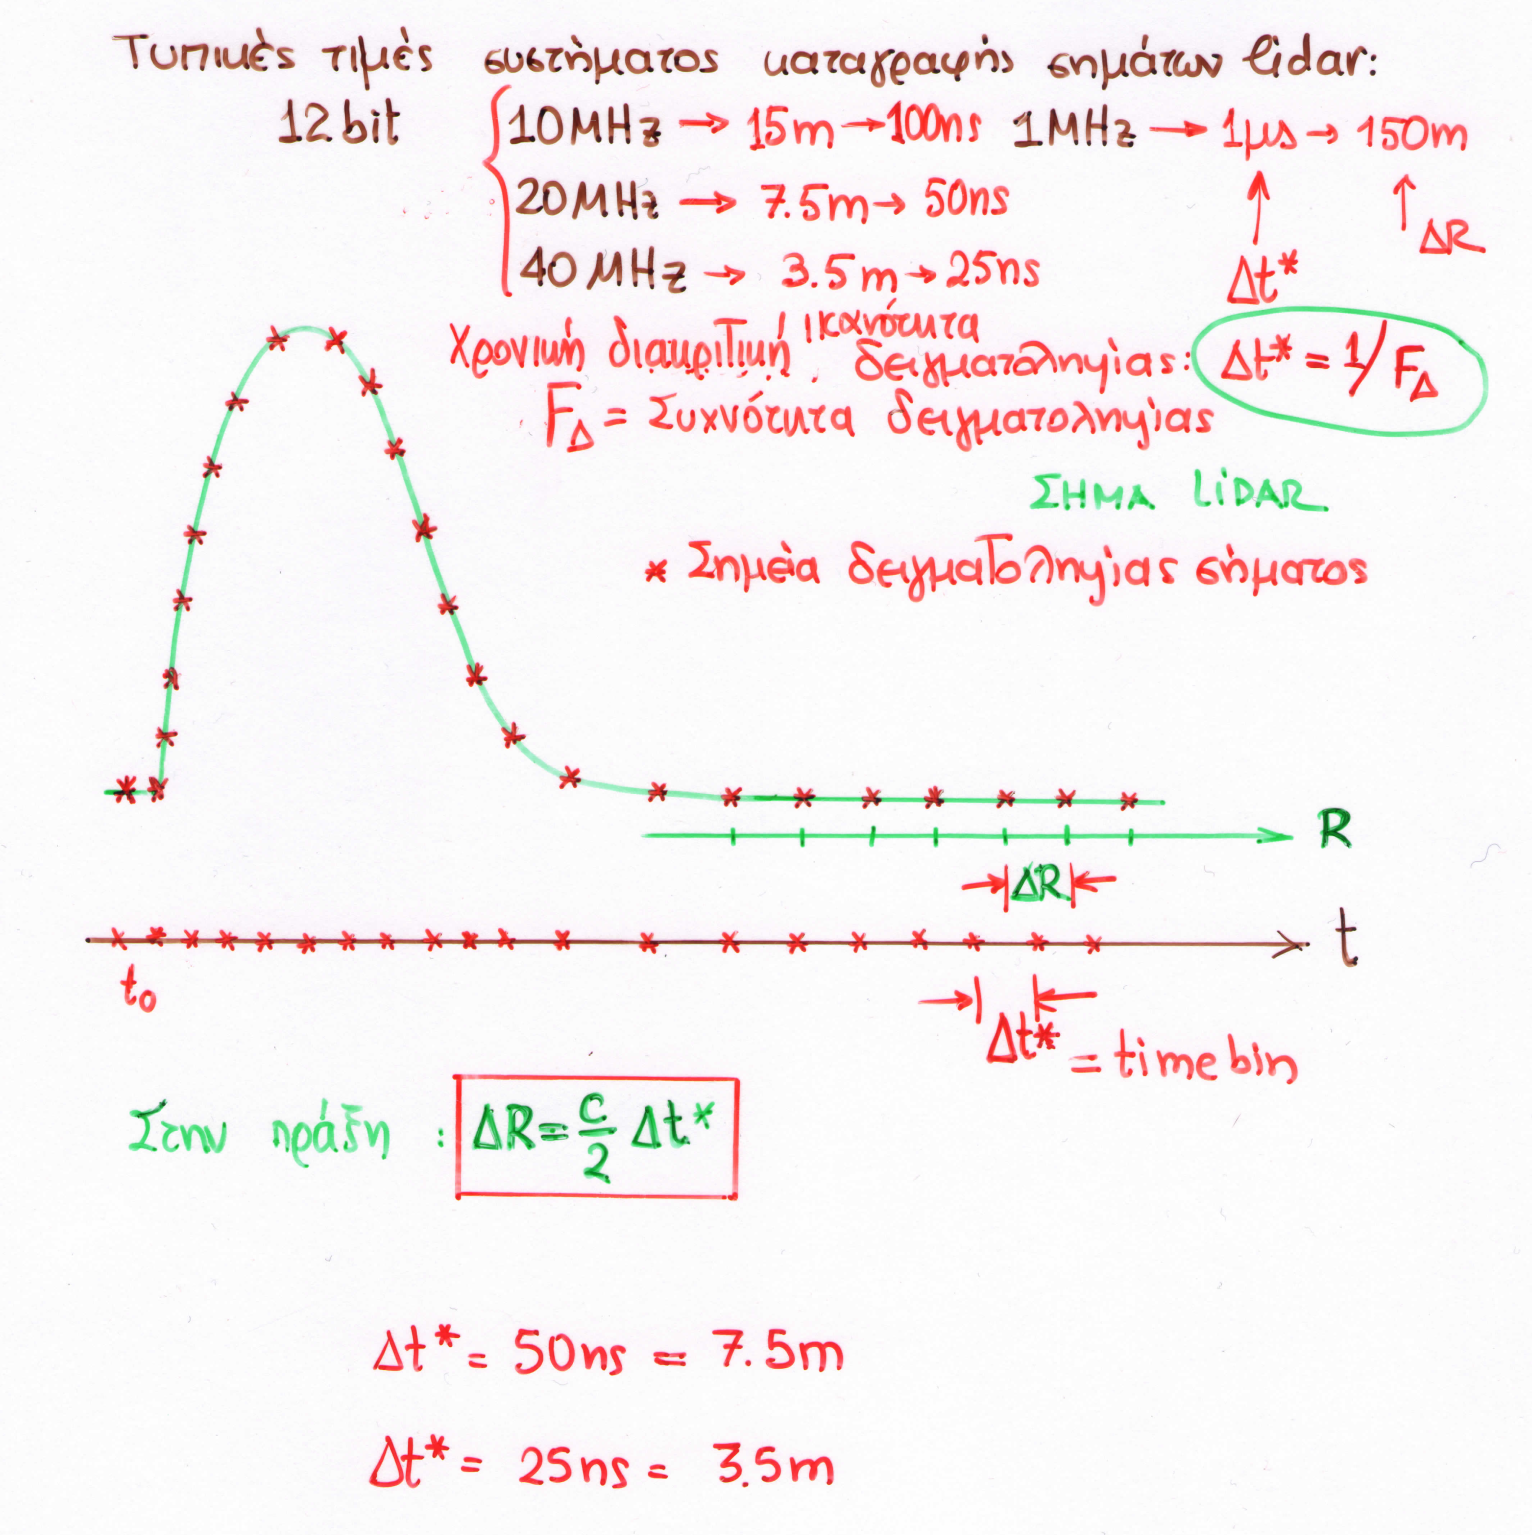 Τυπικὲς τιμὲς συστὴματος καταγραφὴς σημάτων lidar:
12 bit { 10 MHz → 15m → 100ns 1 MHz → 1μs → 150m
20 MHz → 7.5m → 50ns ↑ ↑ ΔR
40 MHz → 3.5m → 25ns Δt*
Χρονικὴ διακριτικὴ ικανότητα δειγματοληψίας: Δt* = 1/F_Δ
F_Δ = Συχνότητα δειγματοληψίας
ΣΗΜΑ LiDAR
* Σημεὶα δειγματοληψίας σὴματος
R
→ |ΔR| ←
t
t₀
→ | Δt* | ← = time bin
Στην πράξη : ΔR = c/2 Δt*
Δt* = 50ns = 7.5m
Δt* = 25ns = 3.5m